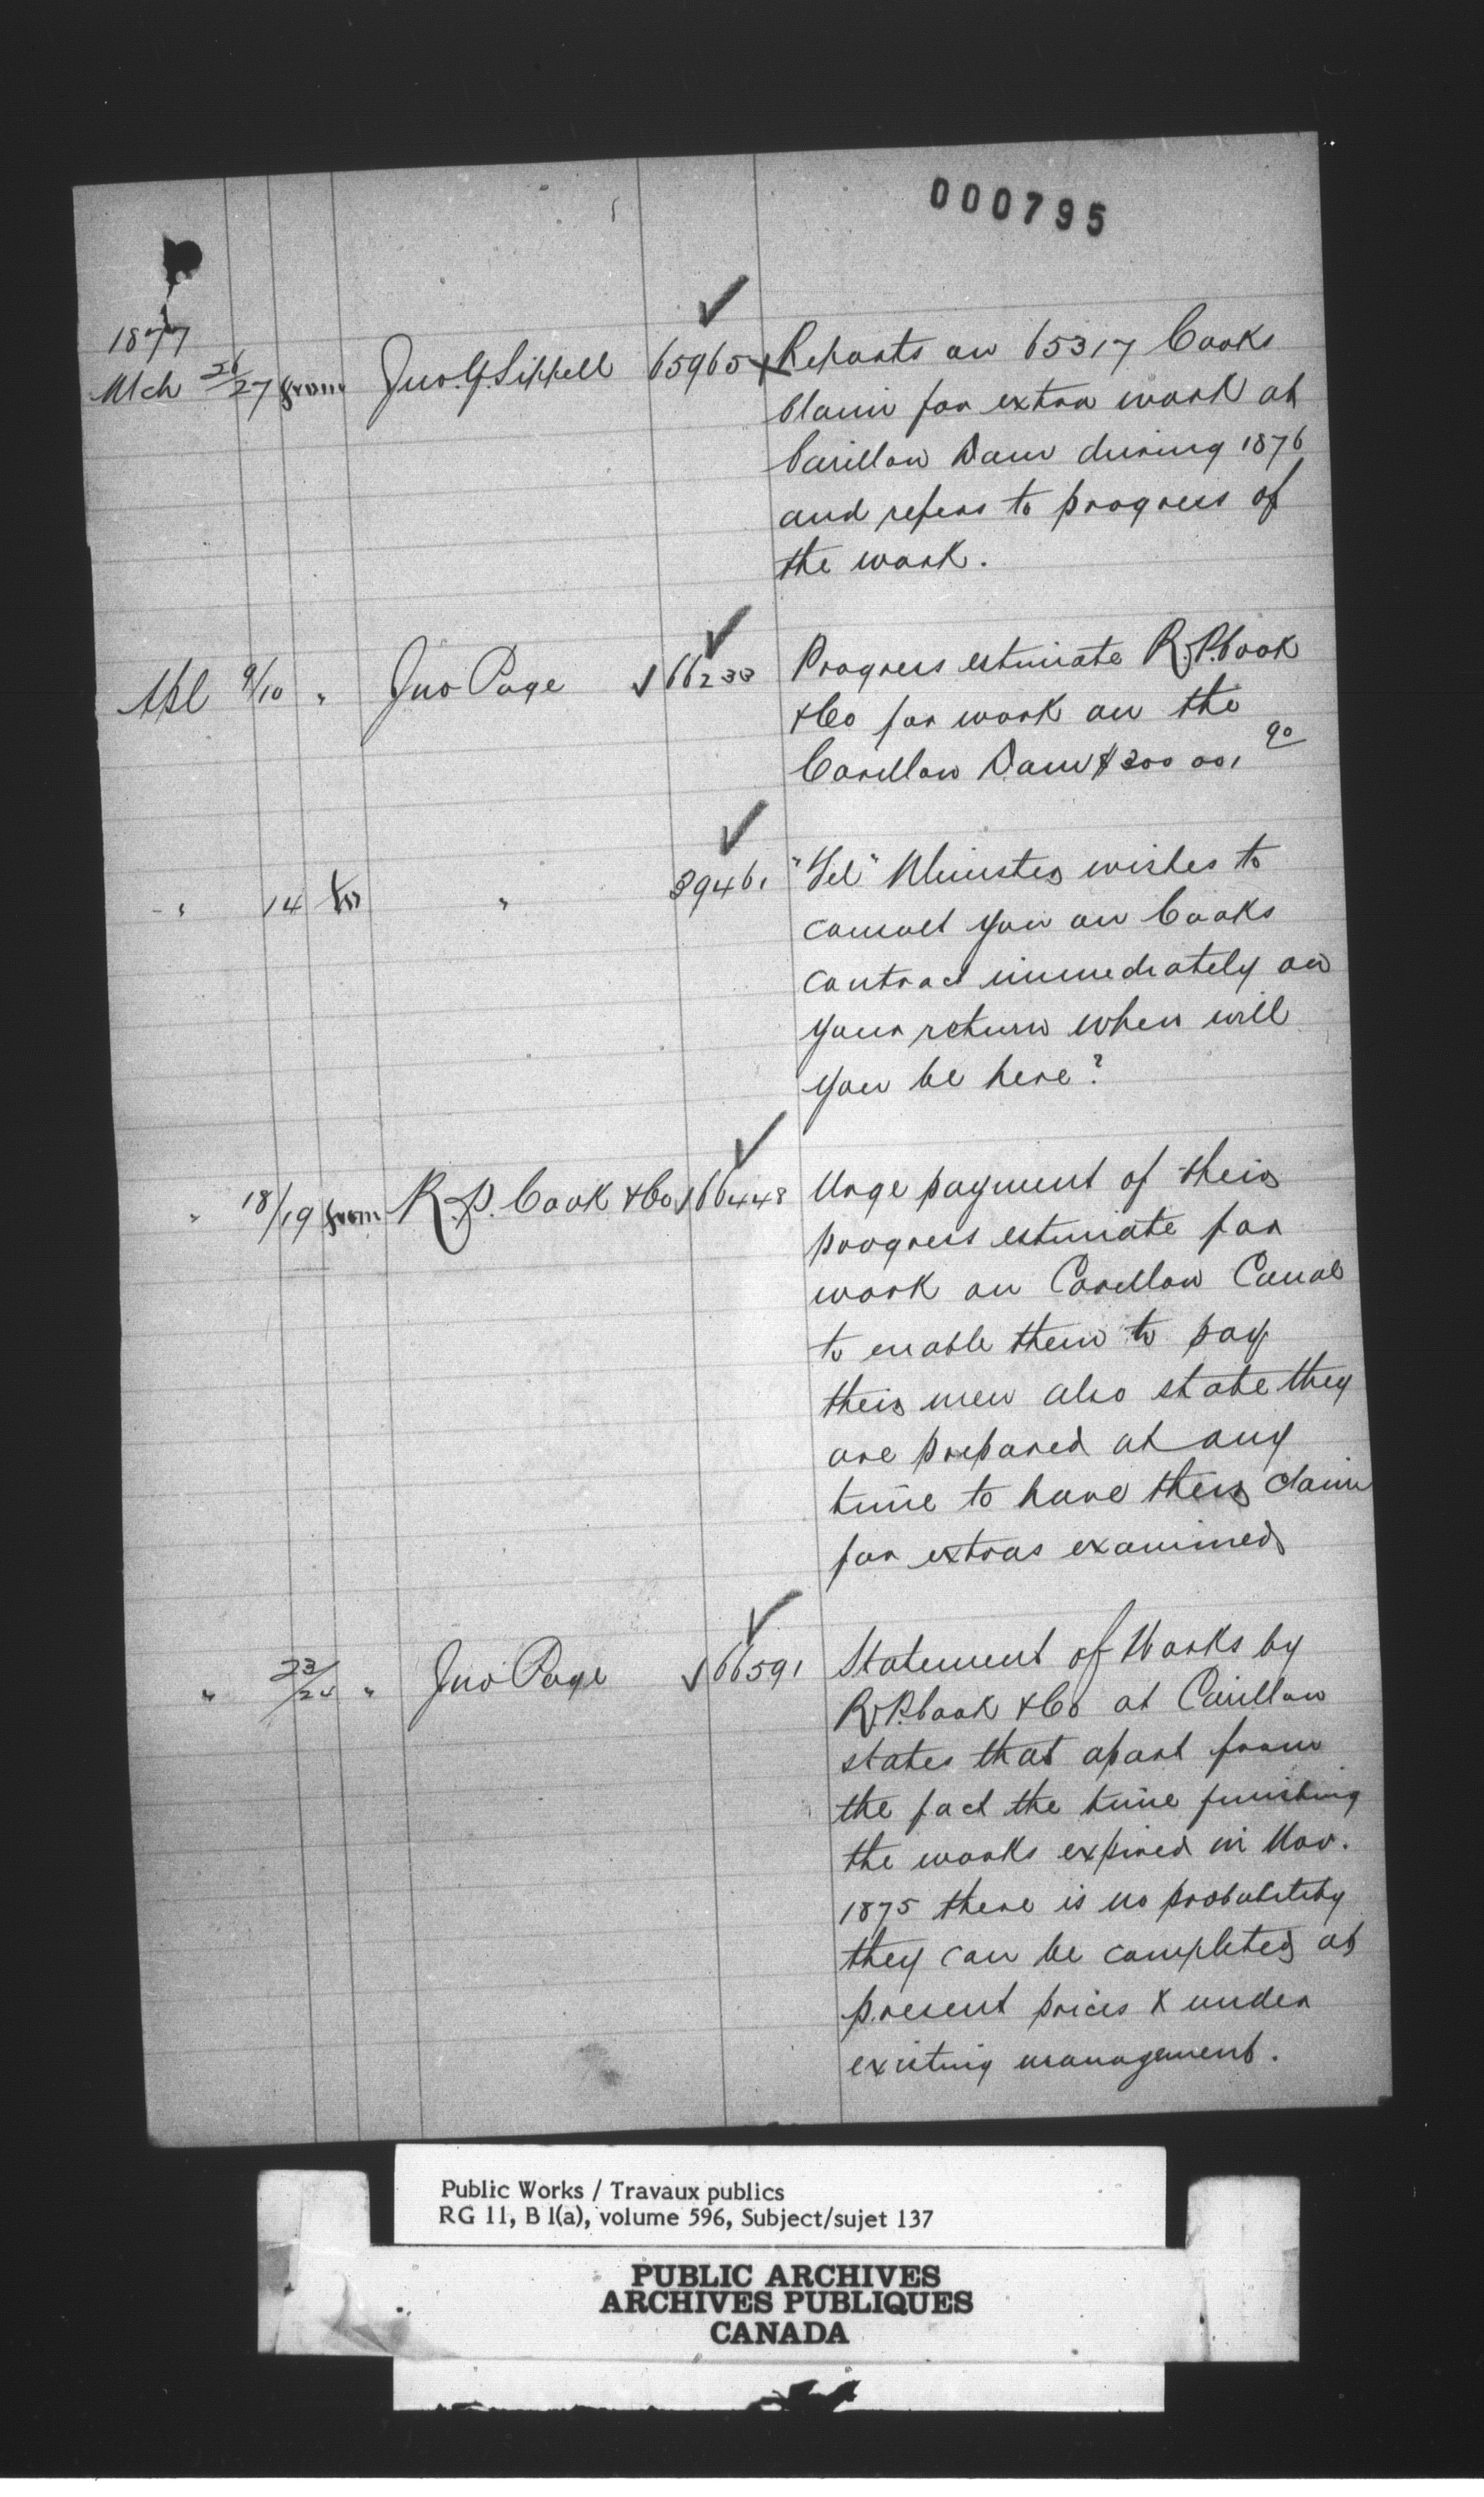 000795
1877
Mch 26/27 from Jno. G. Sippell 65965 Reports on 65317 Cooks
Claim for extra work at
Carillon Dam during 1876
and refers to progress of
the work.
Apl 9/10 " Jno Page 66233 Progress estimate R.P. Cook
& Co for work on the
Carillon Dam $
" 14 to " 39461 "Tel" Minister wishes to
consult you on Cooks
contract immediately on
your return when will
you be here?
" 18/19 from R.P. Cook & Co 66448 Urge payment of their
progress estimate for
work on Carillon Canal
to enable them to pay
their men also state they
are prepared at any
time to have their claim
for extras examined
" 23/24 " Jno Page 66591 Statement of Works by
R.P. Cook & Co at Carillon
states that apart from
the fact the time finishing
the works expired in Nov.
1875 there is no probability
they can be completed at
present prices & under
existing management.
Public Works / Travaux publics
RG 11, B 1(a), volume 596, Subject/sujet 137
PUBLIC ARCHIVES
ARCHIVES PUBLIQUES
CANADA